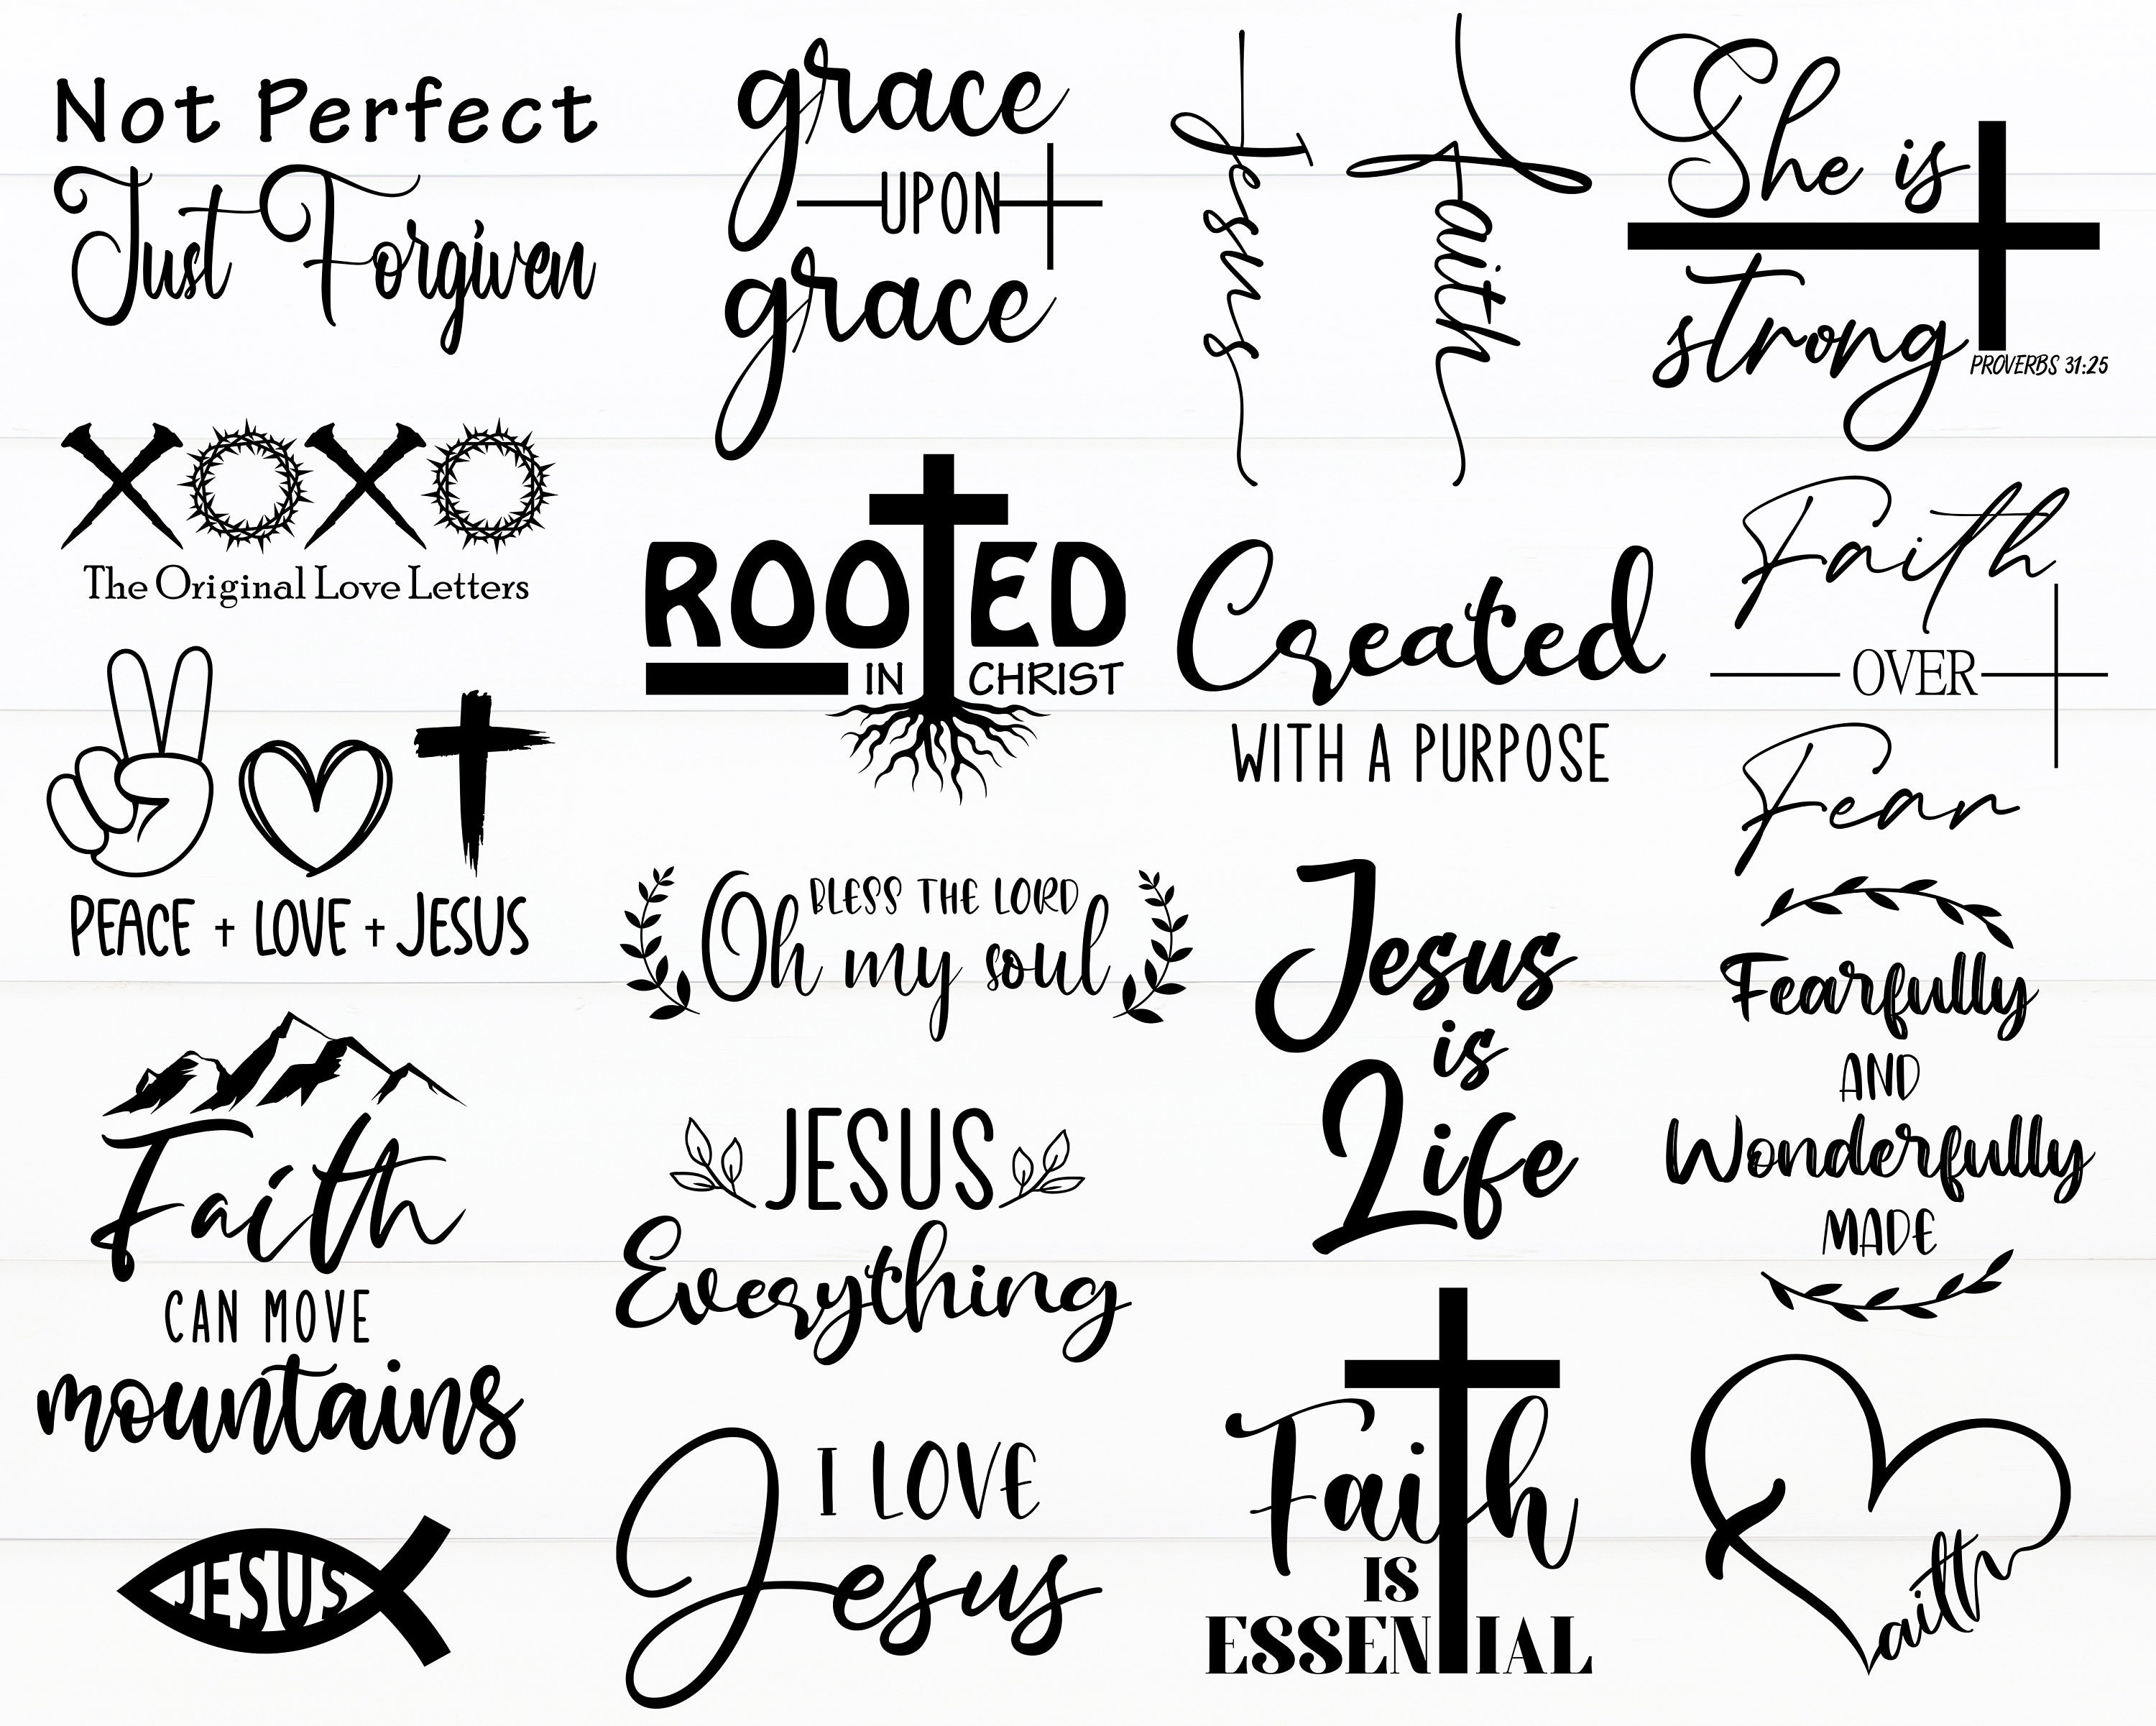 Not Perfect
Just Forgiven
grace
UPON
grace
Jesus
Faith
She is
strong
PROVERBS 31:25
XOXO
The Original Love Letters
ROOTED
IN CHRIST
Created
WITH A PURPOSE
Faith
OVER
Fear
PEACE + LOVE + JESUS
BLESS THE LORD
Oh my soul
Jesus
is
Life
Fearfully
AND
Wonderfully
MADE
Faith
CAN MOVE
mountains
JESUS
Everything
I LOVE
Jesus
Faith
IS
ESSENTIAL
JESUS
Faith